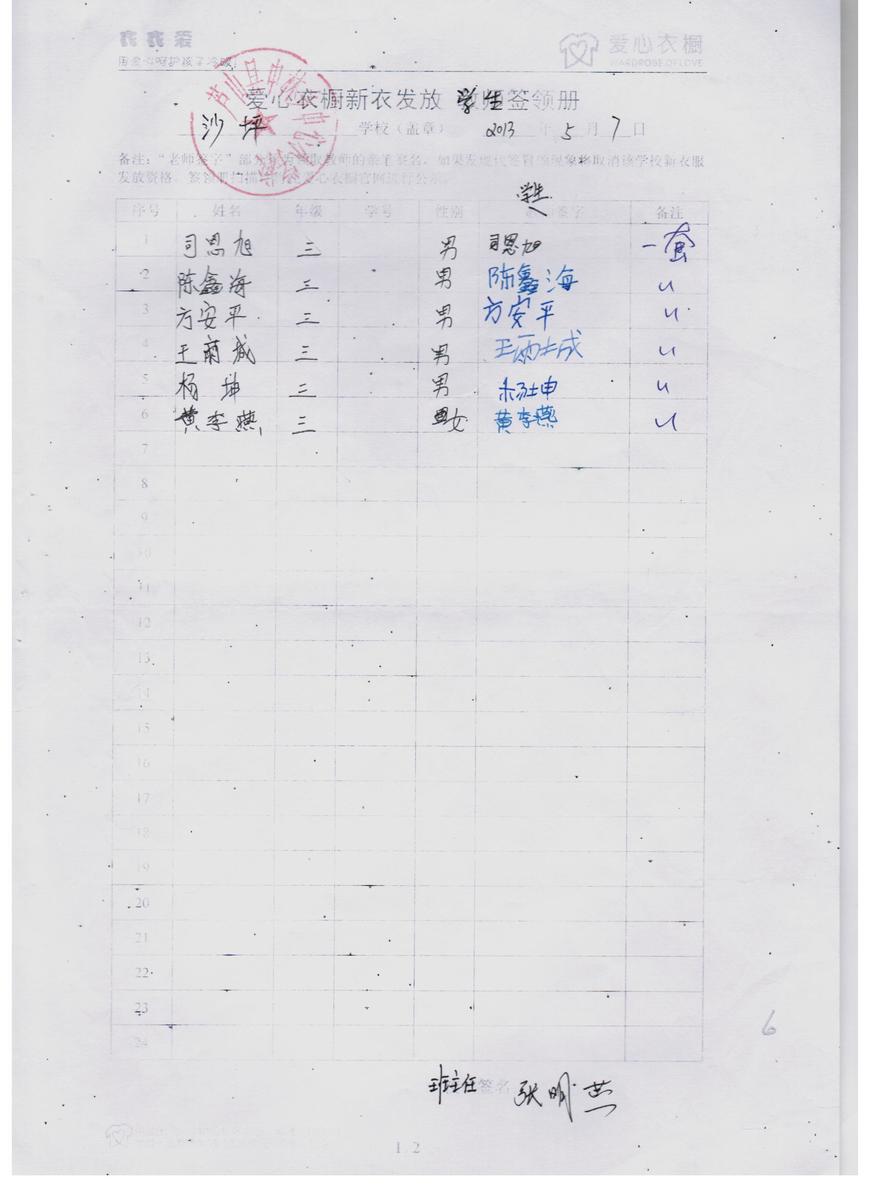 爱心衣橱
WARDROBE OF LOVE
爱心衣橱新衣发放 学生 签领册
沙坪 学校（盖章） 2013 年 5 月 7 日
备注：“老师签字”部分 领取教师的亲笔签名，如果发现代签冒领现象将取消该学校新衣服
发放资格。签领册扫描 爱心衣橱官网进行公示
学生
序号 姓名 年级 学号 性别 签字 备注
1 司恩旭 三 男 司恩旭 一套
2 陈鑫海 三 男 陈鑫海 〃
3 方安平 三 男 方安平 〃
4 王 成 三 男 王 成 〃
5 杨坤 三 男 杨坤 〃
6 黄李燕 三 女 黄李燕 〃
7
8
9
10
11
12
13
14
15
16
17
18
19
20
21
22
23
24
6
班主任 签名 张明燕
1 2